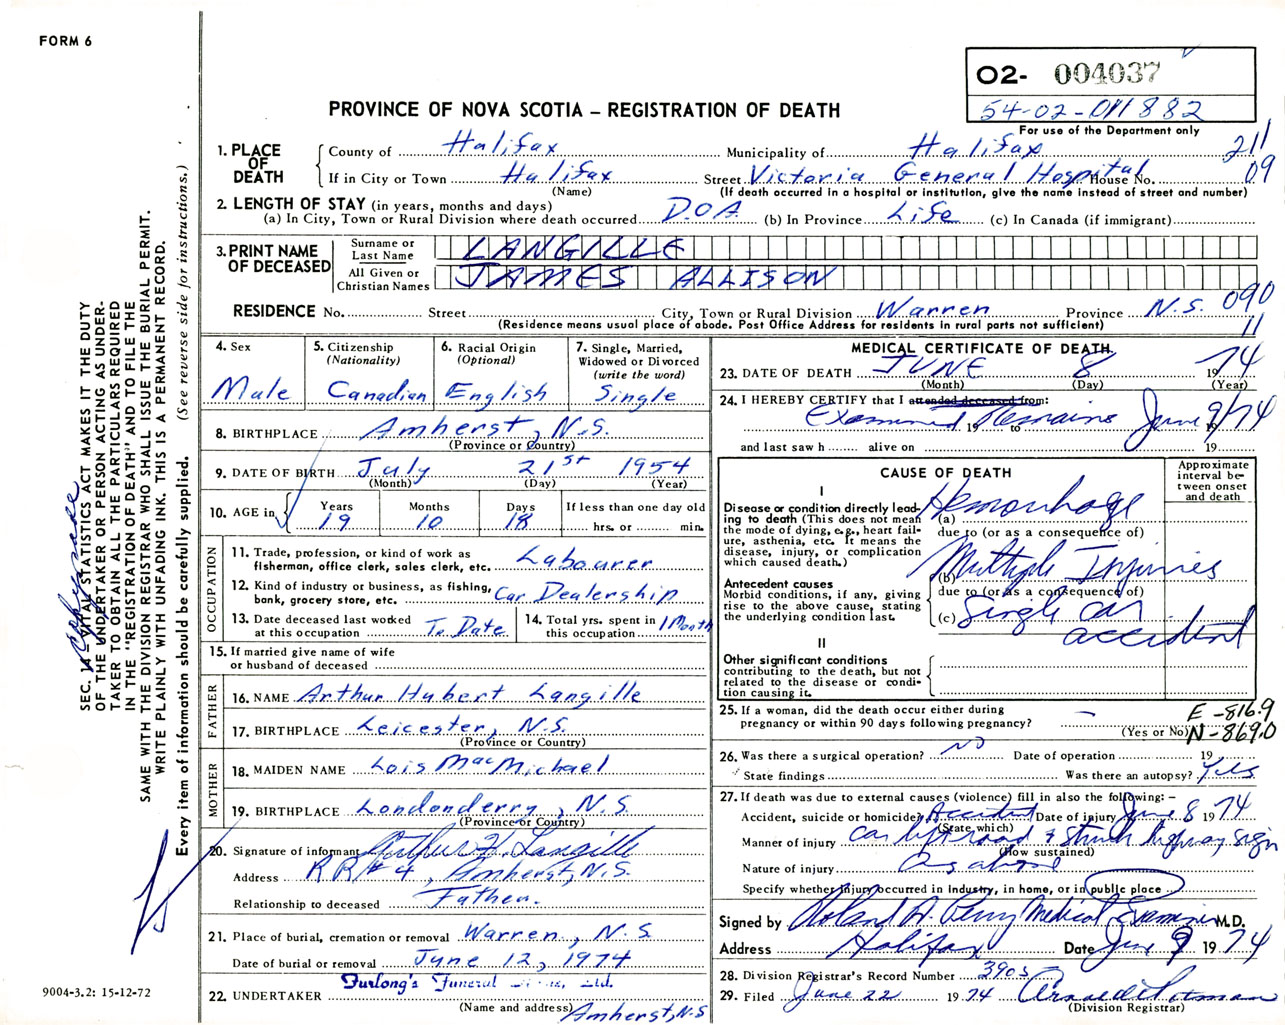 FORM 6
O2- 004037
54-02-011882
For use of the Department only
PROVINCE OF NOVA SCOTIA – REGISTRATION OF DEATH
211
09
1. PLACE OF DEATH
County of Halifax Municipality of Halifax
If in City or Town Halifax Street Victoria General Hospital House No.
(Name) (If death occurred in a hospital or institution, give the name instead of street and number)
2. LENGTH OF STAY (in years, months and days)
(a) In City, Town or Rural Division where death occurred DOA (b) In Province Life (c) In Canada (if immigrant)
3. PRINT NAME OF DECEASED
Surname or Last Name LANGILLE
All Given or Christian Names JAMES ALLISON
RESIDENCE No. Street City, Town or Rural Division Warren Province N.S. 090
(Residence means usual place of abode. Post Office Address for residents in rural parts not sufficient) 11
4. Sex
Male
5. Citizenship (Nationality)
Canadian
6. Racial Origin (Optional)
English
7. Single, Married, Widowed or Divorced (write the word)
Single
8. BIRTHPLACE Amherst, N.S.
(Province or Country)
9. DATE OF BIRTH July 21st 1954
(Month) (Day) (Year)
10. AGE in
Years Months Days If less than one day old
19 10 18 hrs. or min.
OCCUPATION
11. Trade, profession, or kind of work as fisherman, office clerk, sales clerk, etc. Labourer
12. Kind of industry or business, as fishing, bank, grocery store, etc. Car Dealership
13. Date deceased last worked at this occupation To Date
14. Total yrs. spent in this occupation 1 Month
15. If married give name of wife or husband of deceased
FATHER
16. NAME Arthur Hubert Langille
17. BIRTHPLACE Leicester, N.S.
(Province or Country)
MOTHER
18. MAIDEN NAME Lois MacMichael
19. BIRTHPLACE Londonderry, N.S.
(Province or Country)
20. Signature of informant Arthur H. Langille
Address RR#4, Amherst, N.S.
Relationship to deceased Father.
21. Place of burial, cremation or removal Warren, N.S.
Date of burial or removal June 12, 1974
Furlong's Funeral Ltd.
22. UNDERTAKER
(Name and address) Amherst, N.S
MEDICAL CERTIFICATE OF DEATH
23. DATE OF DEATH JUNE 8 1974
(Month) (Day) (Year)
24. I HEREBY CERTIFY that I attended deceased from:
Examined Remains June 9/74
19 to 19
and last saw h alive on 19
CAUSE OF DEATH
Approximate interval between onset and death
I
Disease or condition directly leading to death (This does not mean the mode of dying, e.g., heart failure, asthenia, etc. It means the disease, injury, or complication which caused death.)
(a) Hemorrhage
due to (or as a consequence of)
Antecedent causes
Morbid conditions, if any, giving rise to the above cause, stating the underlying condition last.
(b) Multiple Injuries
due to (or as a consequence of)
(c) Single car accident
II
Other significant conditions contributing to the death, but not related to the disease or condition causing it.
25. If a woman, did the death occur either during pregnancy or within 90 days following pregnancy? –
(Yes or No)
E-816.9
N-869.0
26. Was there a surgical operation? NO Date of operation 19
State findings Was there an autopsy? Yes
27. If death was due to external causes (violence) fill in also the following: –
Accident, suicide or homicide Accident Date of injury June 8 1974
(State which)
Manner of injury car left road & struck highway sign
(How sustained)
Nature of injury As above
Specify whether injury occurred in Industry, in home, or in public place
Signed by Medical Examiner M.D.
Address Halifax Date June 9 1974
28. Division Registrar's Record Number 3903
29. Filed June 22 1974
(Division Registrar)
SEC. 14 – VITAL STATISTICS ACT MAKES IT THE DUTY
OF THE UNDERTAKER OR PERSON ACTING AS UNDER-
TAKER TO OBTAIN ALL THE PARTICULARS REQUIRED
IN THE "REGISTRATION OF DEATH" AND TO FILE THE
SAME WITH THE DIVISION REGISTRAR WHO SHALL ISSUE THE BURIAL PERMIT.
WRITE PLAINLY WITH UNFADING INK. THIS IS A PERMANENT RECORD.
Every item of information should be carefully supplied. (See reverse side for instructions.)
9004-3.2: 15-12-72